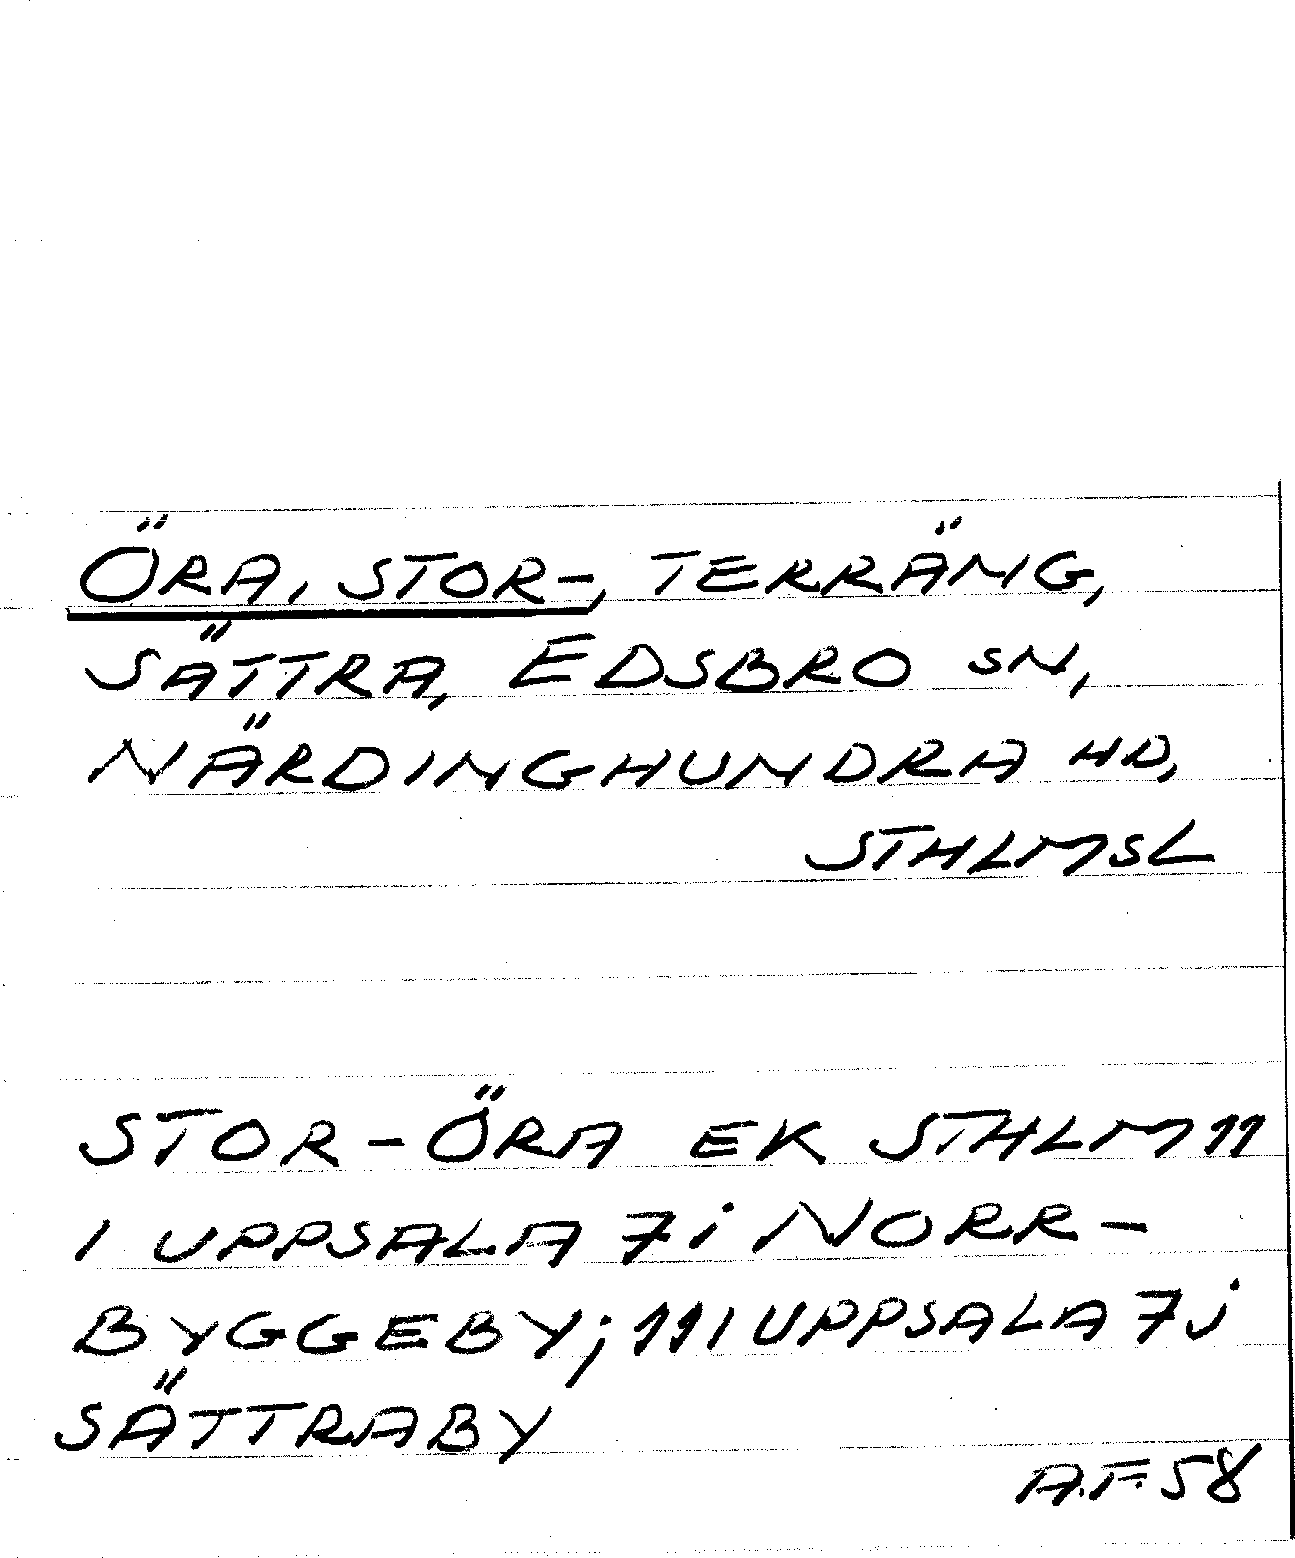 ÖRA, STOR-, TERRÄNG,
SÄTTRA, EDSBRO SN,
NÄRDINGHUNDRA HD,
STHLMSL
STOR-ÖRA EK STHLM 11
I UPPSALA 7i NORR-
BYGGEBY; 11 I UPPSALA 7J
SÄTTRABY
A.F. 58